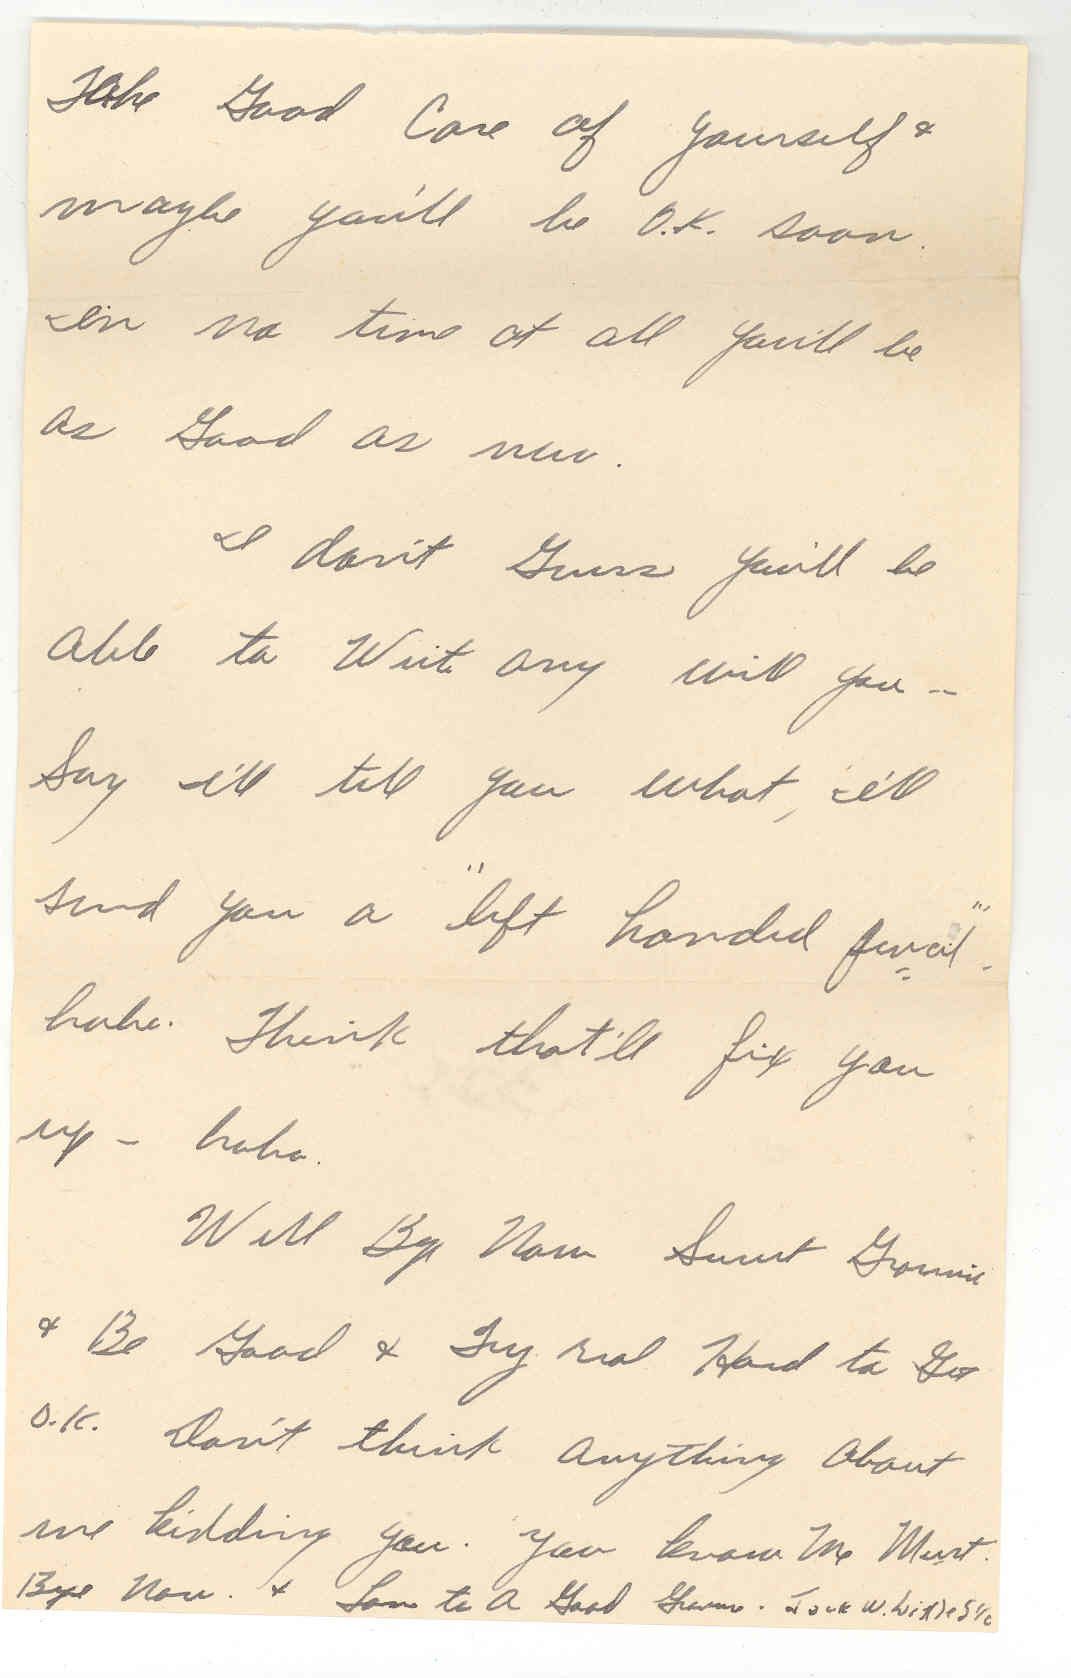 Take Good Care of yourself &
maybe you'll be O.K. soon.
in no time at all you'll be
as Good as new.
I don't Guess you'll be
able to Write any will you -
Say i'll tell you what, i'll
send you a "left handed pencil".
haha. Think that'll fix you
up - haha.
Well Bye Now Sweet Grannie
& Be Good & Try real Hard to Get
O.K. Don't think anything about
me kidding you. You know Me
Bye Now. & Love to A Good Jack W. S 1/c